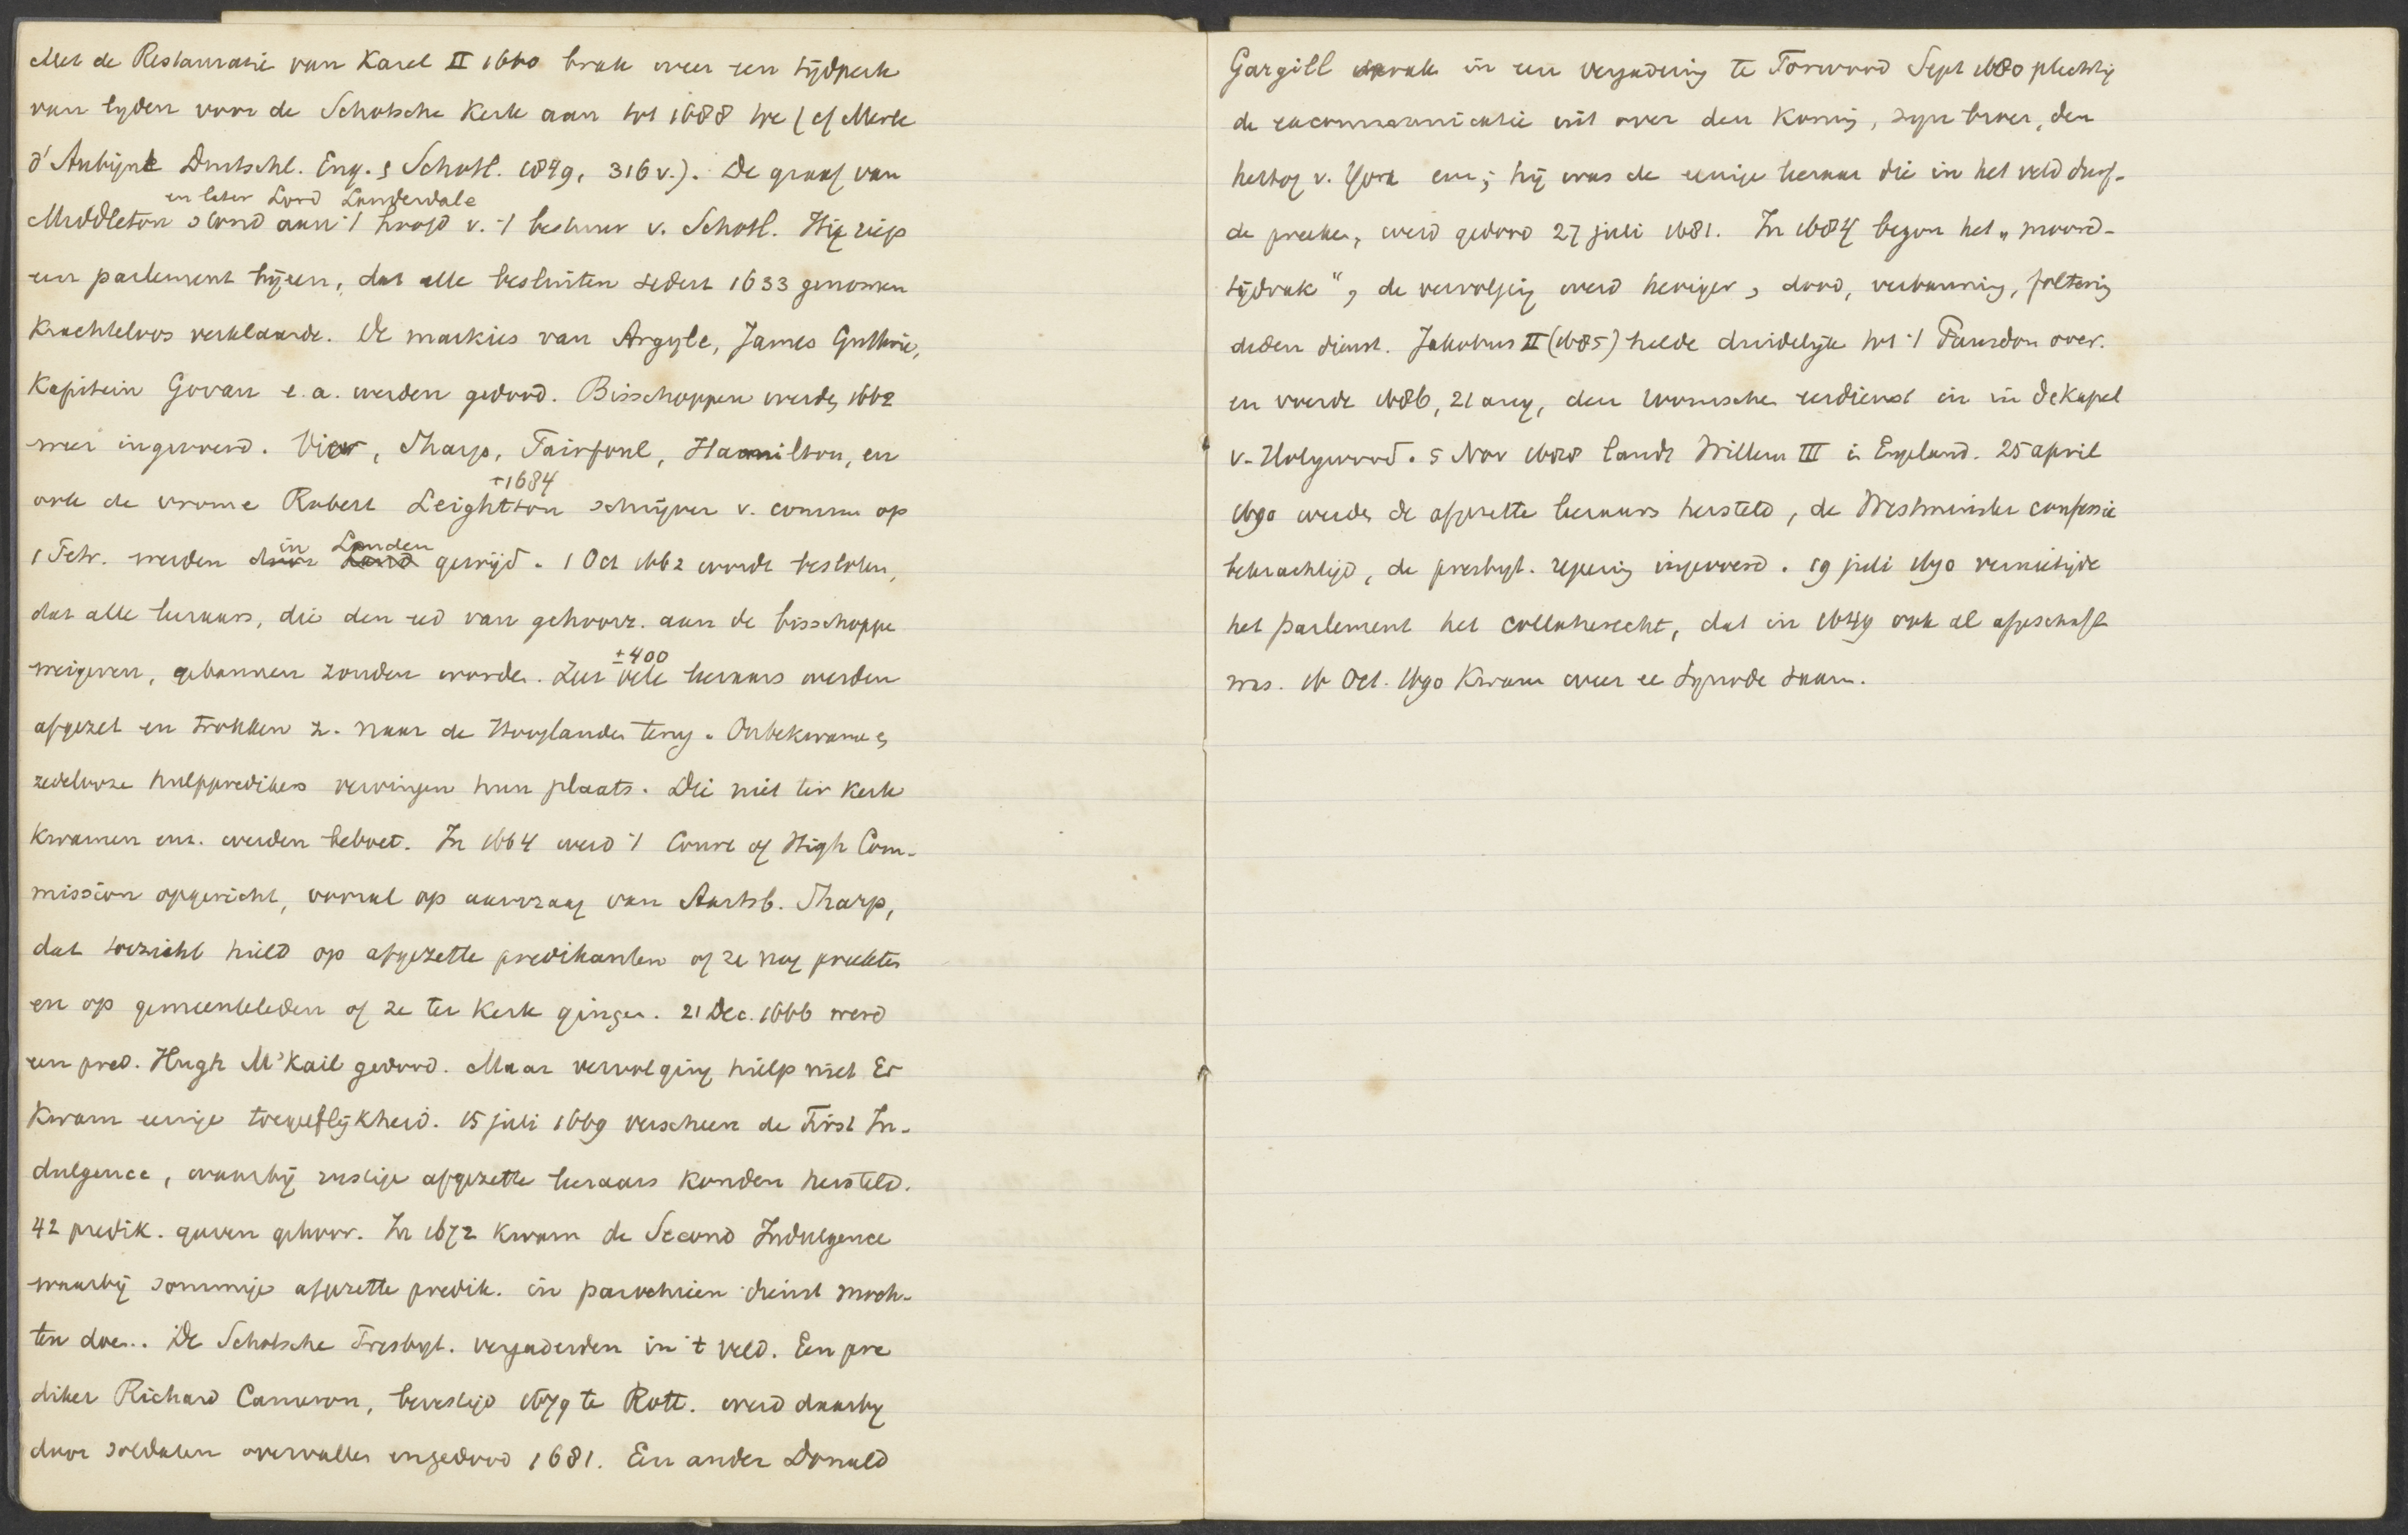 Met de Restauratie van Karel II 1660 brak weer een tijdperk
van lyden voor de Schotsche Kerk aan tot 1688 toe (cf Merle
d'Aubigné Duitschl. Eng. & Schotl. 1849, 316 v.). De graaf van
en later Lord Landerdale
Middleton stond aan 't hoofd v. 't bestuur v. Schotl. Hij riep
een parlement bijeen, dat alle besluiten sedert 1633 genomen
krachteloos verklaarde. De markies van Argyle, James Guthrie,
Kapitein Govan e.a. werden gedood. Bisschoppen werden 1662
weer ingevoerd. Vier, Sharp, Fairfoul, Hamilton, en
†1684
ook de vrome Robert Leightton schrijver v. comm. op
in Londen
1 Petr. werden door Lond gewijd. 1 Oct 1662 wordt besloten,
dat alle leeraars, die den eed van gehoorz. aan de bisschoppe
±400
weigeren, gebannen zouden worden. Zeer vele leeraars werden
afgezet en trokken z. naar de Hooglanden terug. Onbekwame &
zedelooze hulppredikers vervingen hun plaats. Die niet ter kerk
kwamen enz. werden beboet. In 1664 werd 't Court of High Com-
mission opgericht, vooral op aanvraag van Aartsb. Sharp,
dat toezicht hield op afgezette predikanten of ze nog preekten
en op gemeenteleden of ze ter kerk gingen. 21 Dec. 1666 werd
een pred. Hugh M'Kail gedood. Maar vervolging hielp niet Er
kwam eenige toegeeflijkheid. 15 juli 1669 verscheen de First In-
dulgence, waarbij rustige afgezette leeraars konden hersteld.
42 predik. gaven gehoor. In 1672 kwam de Second Indulgence
waarbij sommige afgezette predik. in parochieen dienst moch-
ten doen. De Schotsche Presbyt. vergaderden in 't veld. Een pre
diker Richard Cameron, bevestigd 1679 te Rott. werd daarby
door soldaten overvallen en gedood 1681. Een ander Donald
Gargill sprak in een vergadering te Torwood Sept 1680 plechtig
de excommunicatie uit over den Koning, zyn broer, den
hertog v. York enz; hij was de eenige leeraar die in het veld durf-
de preeken, werd gedood 27 juli 1681. In 1684 begon het „moord-
tijdvak", de vervolging werd heviger, dood, verbanning, foltering
deden dienst. Jakobus II (1685) helde duidelijk tot 't Pausdom over.
en voerde 1686, 21 aug, den roomschen eerdienst in in de Kapel
v. Holyrood. 5 Nov 1688 landt Willem III in Engeland. 25 april
1690 werden de afgezette leeraars hersteld, de Westminster confessie
bekrachtigd, de presbyt. regering ingevoerd. 19 juli 1690 vernietigde
het parlement het collatierecht, dat in 1649 ook al afgeschaft
was. 16 Oct. 1690 kwam weer ee Synode saam.